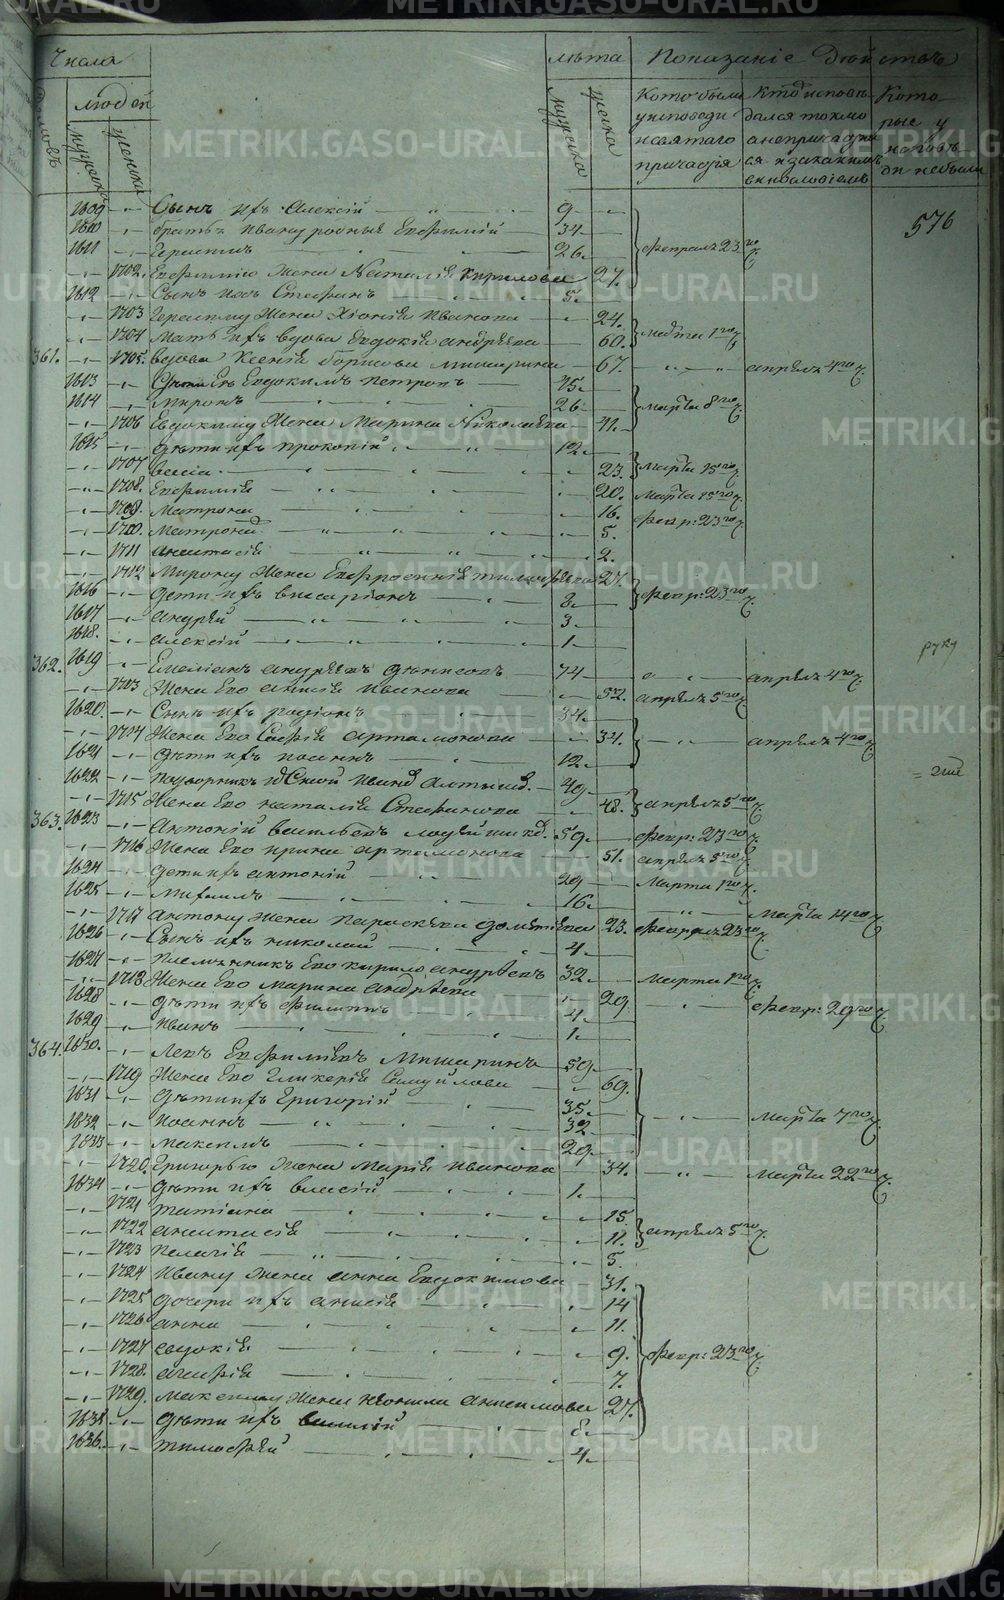 Числа лѣта Показаніе Дѣйствъ
домовъ людей мужеска женска мужеска женска Кото были у исповеди и святаго причастія Кто исповѣдался токмо а непричащался и за какимъ винословіемъ Которые у исповѣди небыли
576
1609 Сынъ ихъ Алексій 9
1610 братья Ивану родные Евфимій 34
1611 Герасимъ 26 февраля 23го ч.
1702. Евфимію Жена Наталія Кирилова 27.
1612 Сынъ ихъ Стефанъ 5.
1703 Герасиму Жена Хіонія Иванова 24.
1704 Мать ихъ вдова Евдокія Андрѣева 60. марта 1го ч
361. 1705. Вдова Ксенія Борисова Мишарина 67. апреля 4го ч.
1613 Дѣти Ея Евдокимъ Петровъ 45.
1614 Миронъ 26 марта 8го ч.
1706 Евдокиму Жена Марина Николаева 41.
1615 Дѣти ихъ Прокопій 12
1707 23. марта 15го ч.
1708. Евфимія 20. марта 15го ч.
1709. Матрона 16. февр: 23го ч.
1710. Матрона 5.
1711 Анастасія 2.
1712 Мирону Жена Евфросинія Тимофѣева 27.
1616 Дети ихъ Висаріонъ 8 февр: 23го ч.
1617 Андрей 3.
1618. Алексій 1
руку
362. 1619 Емеліанъ Андреевъ Денисовъ 74 апреля 4го ч.
1713 Жена Его Анисія Иванова 52. апреля 5го ч.
1620. Сынъ ихъ Родіонъ 34.
1714 Жена Его Софія Артамонова 34. апреля 4го ч.
1621 Дѣти ихъ Іоаннъ 12.
1622 49
1715 Жена Его Наталія Стефанова 48. апреля 5го ч.
363. 1623 Антоній Васильевъ 59. февр: 23го ч.
1716 Жена Его Ирина Артамонова 51. апреля 5го ч.
1624 Дети ихъ Антоній 29 марта 1го ч.
1625 Михаилъ 16. марта 14го ч.
1717 Антону Жена Параскева 23. февраля 23го ч.
1626 Сынъ ихъ Николай 4.
1627 Племянникъ Его Кирило Андрѣевъ 32. марта 1го ч.
1718 Жена Его Марина Андрѣева 29. февр: 29го ч.
1628 Дѣти ихъ Филиппъ 4.
1629 Иванъ 1.
364. 1630. Левъ Евфиміевъ Мишаринъ 59.
1719 Жена Его Гликерія Самуилова 69.
1631 Дѣти ихъ Григорій 35.
1632 Іоаннъ 32 марта 7го ч.
1633 Максимъ 29.
1720. Григорью Жена Марія Иванова 34. марта 22го ч.
1634 Дѣти ихъ Власій 1.
1721 Татіана 15.
1722 Анастасія 11. апреля 5го ч.
1723 Пелагія 5.
1724 Ивану Жена Анна Евдокимова 31.
1725 Дочери ихъ Анисія 14
1726 Анна 11.
1727 Евдокія 9. февр: 23го ч.
1728. Агафія 7.
1729. Максиму Жена Неонила Анисимова 27.
1635 Дѣти ихъ Василій 8.
1636. Тимофѣй 4.